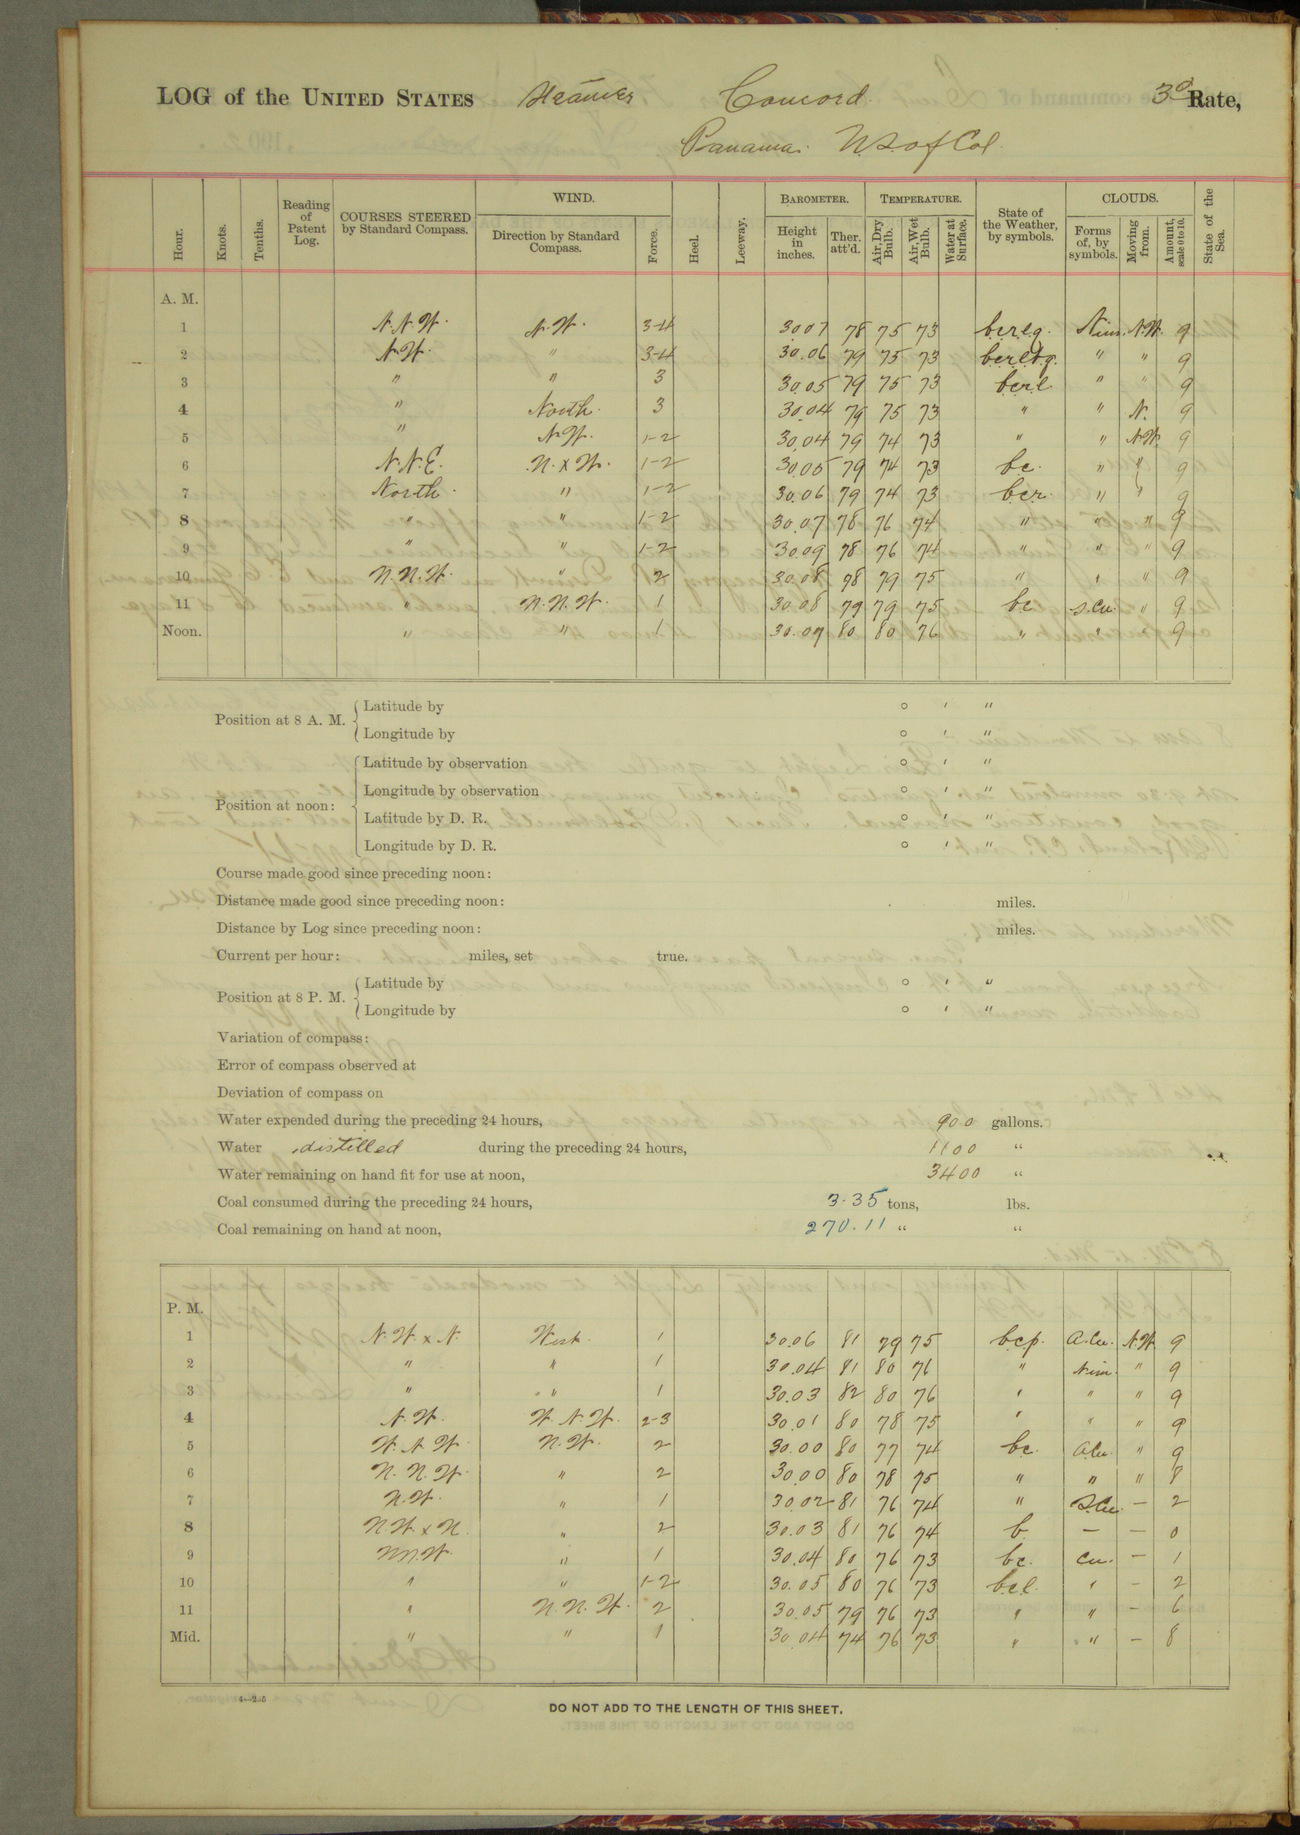 LOG of the UNITED STATES Steamer Concord. 3d Rate,
Panama. U.S. of Col.
Hour. Knots. Tenths. Reading of Patent Log. COURSES STEERED by Standard Compass. WIND. Direction by Standard Compass. Force. Heel. Leeway. BAROMETER. Height in inches. Ther. att'd. TEMPERATURE. Air, Dry Bulb. Air, Wet Bulb. Water at Surface. State of the Weather, by symbols. CLOUDS. Forms of, by symbols. Moving from. Amount, scale 0 to 10. State of the Sea.
A. M.
1 N.N.W. N.W. 3-4 30.07 78 75 73 b.c.r.l.q. Nim. N.W. 9
2 N.W. " 3-4 30.06 79 75 73 b.c.r.l.t.q. " " 9
3 " " 3 30.05 79 75 73 b.c.r.l. " " 9
4 " North. 3 30.04 79 75 73 " " N. 9
5 " N.W. 1-2 30.04 79 74 73 " " N.W. 9
6 N.N.E. N. x W. 1-2 30.05 79 74 73 b.c. " " 9
7 North. " 1-2 30.06 79 74 73 b.c.r. " " 9
8 " " 1-2 30.07 78 76 74 " " " 9
9 " " 1-2 30.09 78 76 74 " " " 9
10 N.N.W. " 2 30.08 78 79 75 " " " 9
11 " N.N.W. 1 30.08 79 79 75 b.c. S.Cu. " 9
Noon. " " 1 30.07 80 80 76 " " 9
Position at 8 A. M. Latitude by ° ' "
Longitude by ° ' "
Position at noon: Latitude by observation ° ' "
Longitude by observation ° ' "
Latitude by D. R. ° ' "
Longitude by D. R. ° ' "
Course made good since preceding noon:
Distance made good since preceding noon: miles.
Distance by Log since preceding noon: miles.
Current per hour: miles, set true.
Position at 8 P. M. Latitude by ° ' "
Longitude by ° ' "
Variation of compass:
Error of compass observed at
Deviation of compass on
Water expended during the preceding 24 hours, 900 gallons.
Water distilled during the preceding 24 hours, 1100 "
Water remaining on hand fit for use at noon, 3400 "
Coal consumed during the preceding 24 hours, 3.35 tons, lbs.
Coal remaining on hand at noon, 270.11 " "
P. M.
1 N.W. x N. West. 1 30.06 81 79 75 b.c.p. A.Cu. N.W. 9
2 " " 1 30.04 81 80 76 " Nim. " 9
3 " " 1 30.03 82 80 76 " " " 9
4 N.W. W.N.W. 2-3 30.01 80 78 75 " " " 9
5 W.N.W. N.W. 2 30.00 80 77 74 b.c. A.Cu. " 9
6 N.N.W. " 2 30.00 80 78 75 " " " 8
7 N.W. " 1 30.02 81 76 74 " S.Cu. - 2
8 N.W. x N. " 2 30.03 81 76 74 b. - - 0
9 N.N.W. " 1 30.04 80 76 73 b.c. Cu. - 1
10 " " 1-2 30.05 80 76 73 b.c.l. " - 2
11 " N.N.W. 2 30.05 79 76 73 " " - 6
Mid. " " 1 30.04 74 76 73 " " - 8
4—2.5
DO NOT ADD TO THE LENGTH OF THIS SHEET.